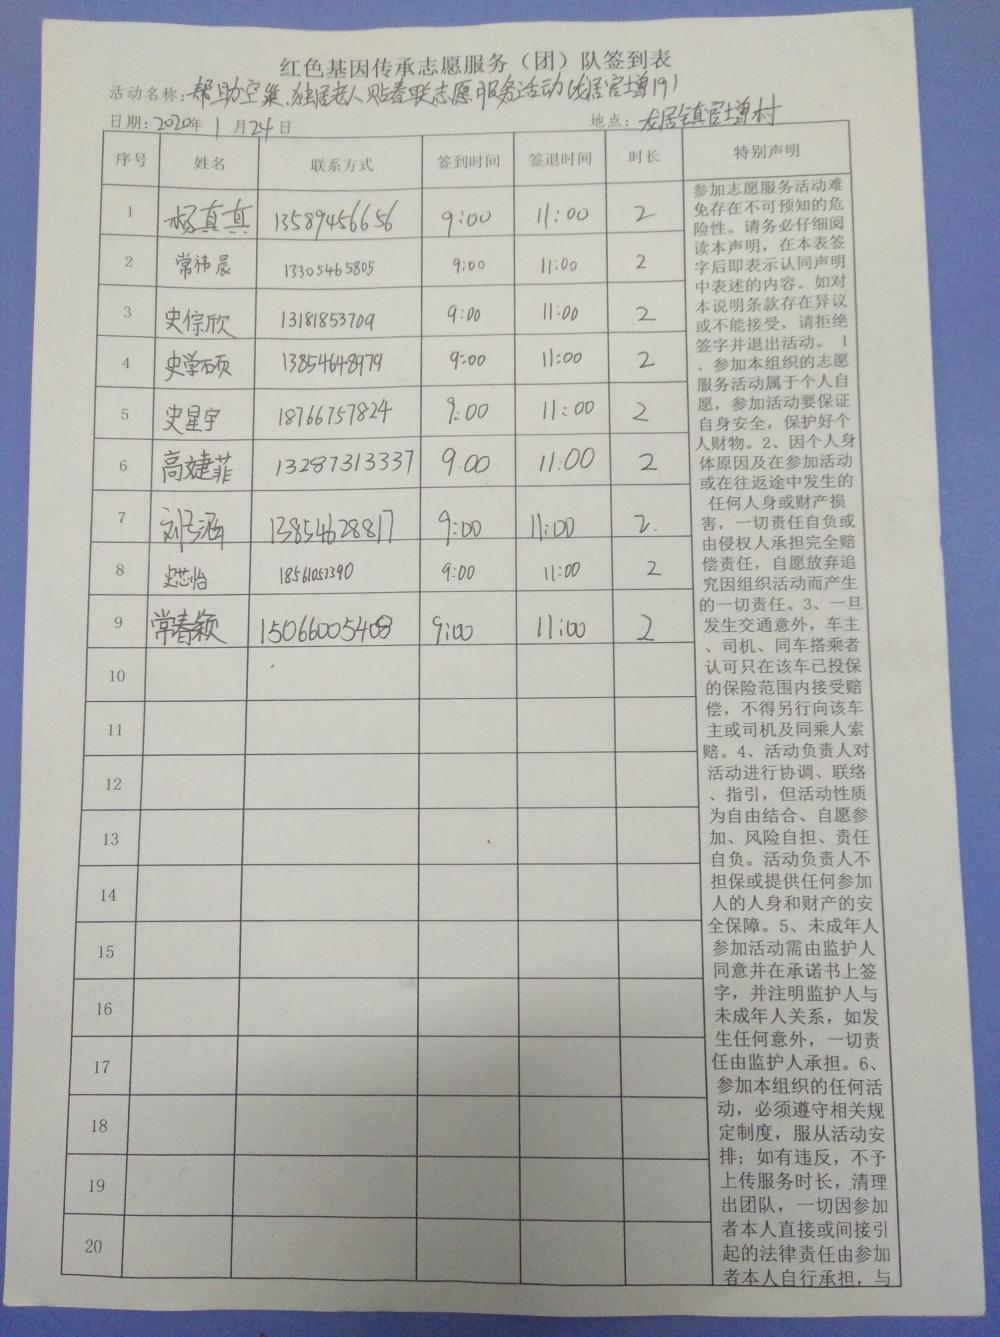 红色基因传承志愿服务（团）队签到表
活动名称：帮助空巢、独居老人贴春联志愿服务活动(龙居官增19)
日期：2020年1月24日 地点：龙居镇官增村
序号 姓名 联系方式 签到时间 签退时间 时长 特别声明
1 杨真真 13589456656 9:00 11:00 2
2 常祎晨 13305465805 9:00 11:00 2
3 史倧欣 13181853709 9:00 11:00 2
4 史学硕 13854648979 9:00 11:00 2
5 史星宇 18766757824 9:00 11:00 2
6 高婕菲 13287313337 9:00 11:00 2
7 刘涵 13854628817 9:00 11:00 2
8 史芯怡 18561057390 9:00 11:00 2
9 常春颖 15066005408 9:00 11:00 2
10
11
12
13
14
15
16
17
18
19
20
参加志愿服务活动难
免存在不可预知的危
险性。请务必仔细阅
读本声明，在本表签
字后即表示认同声明
中表述的内容。如对
本说明条款存在异议
或不能接受，请拒绝
签字并退出活动。 1
、参加本组织的志愿
服务活动属于个人自
愿，参加活动要保证
自身安全，保护好个
人财物。2、因个人身
体原因及在参加活动
或在往返途中发生的
任何人身或财产损
害，一切责任自负或
由侵权人承担完全赔
偿责任，自愿放弃追
究因组织活动而产生
的一切责任。3、一旦
发生交通意外，车主
、司机、同车搭乘者
认可只在该车已投保
的保险范围内接受赔
偿，不得另行向该车
主或司机及同乘人索
赔。4、活动负责人对
活动进行协调、联络
、指引，但活动性质
为自由结合、自愿参
加、风险自担、责任
自负。活动负责人不
担保或提供任何参加
人的人身和财产的安
全保障。5、未成年人
参加活动需由监护人
同意并在承诺书上签
字，并注明监护人与
未成年人关系，如发
生任何意外，一切责
任由监护人承担。6、
参加本组织的任何活
动，必须遵守相关规
定制度，服从活动安
排；如有违反，不予
上传服务时长，清理
出团队，一切因参加
者本人直接或间接引
起的法律责任由参加
者本人自行承担，与